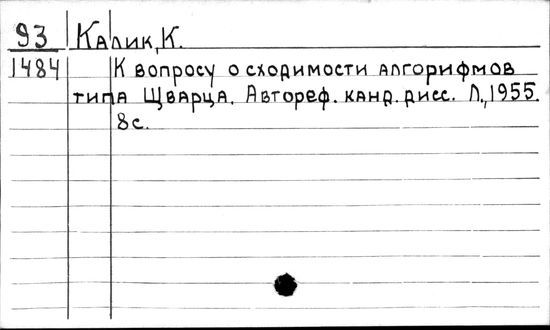 93 Калик, К.
1484 К вопросу о сходимости алгорифмов
типа Щварца. Автореф. канд. дисс. Л., 1955.
8с.